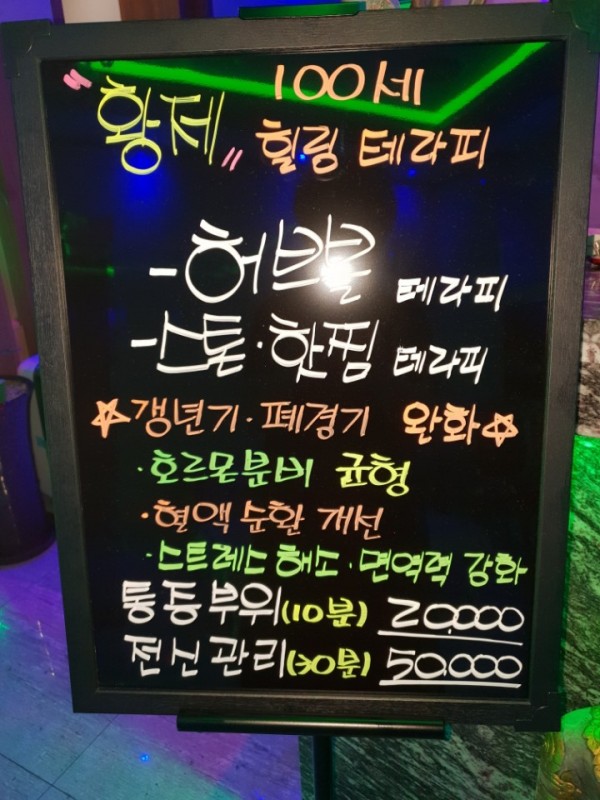 100세
"황제" 힐링 테라피
-허브볼 테라피
-스톤·한찜 테라피
☆갱년기·폐경기 완화☆
·호르몬분비 균형
·혈액순환 개선
·스트레스해소·면역력 강화
통증부위(10분) 20,000
전신관리(30분) 50,000